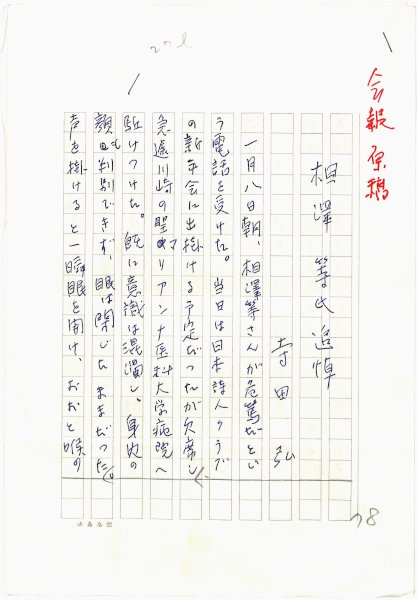 会報原稿
相澤等氏追悼
寺田弘
一月八日朝、相澤等さんが危篤だとい
う電話を受けた。当日は日本詩人クラブ
の新年会に出掛ける予定だったが欠席し
急遽川崎の聖マリアンナ医科大学病院へ
駈けつけた。既に意識は混濁し。身内の
顔も判別できず、眼は閉じたままだった。
声を掛けると一瞬眼を開け、おおと喉の
78